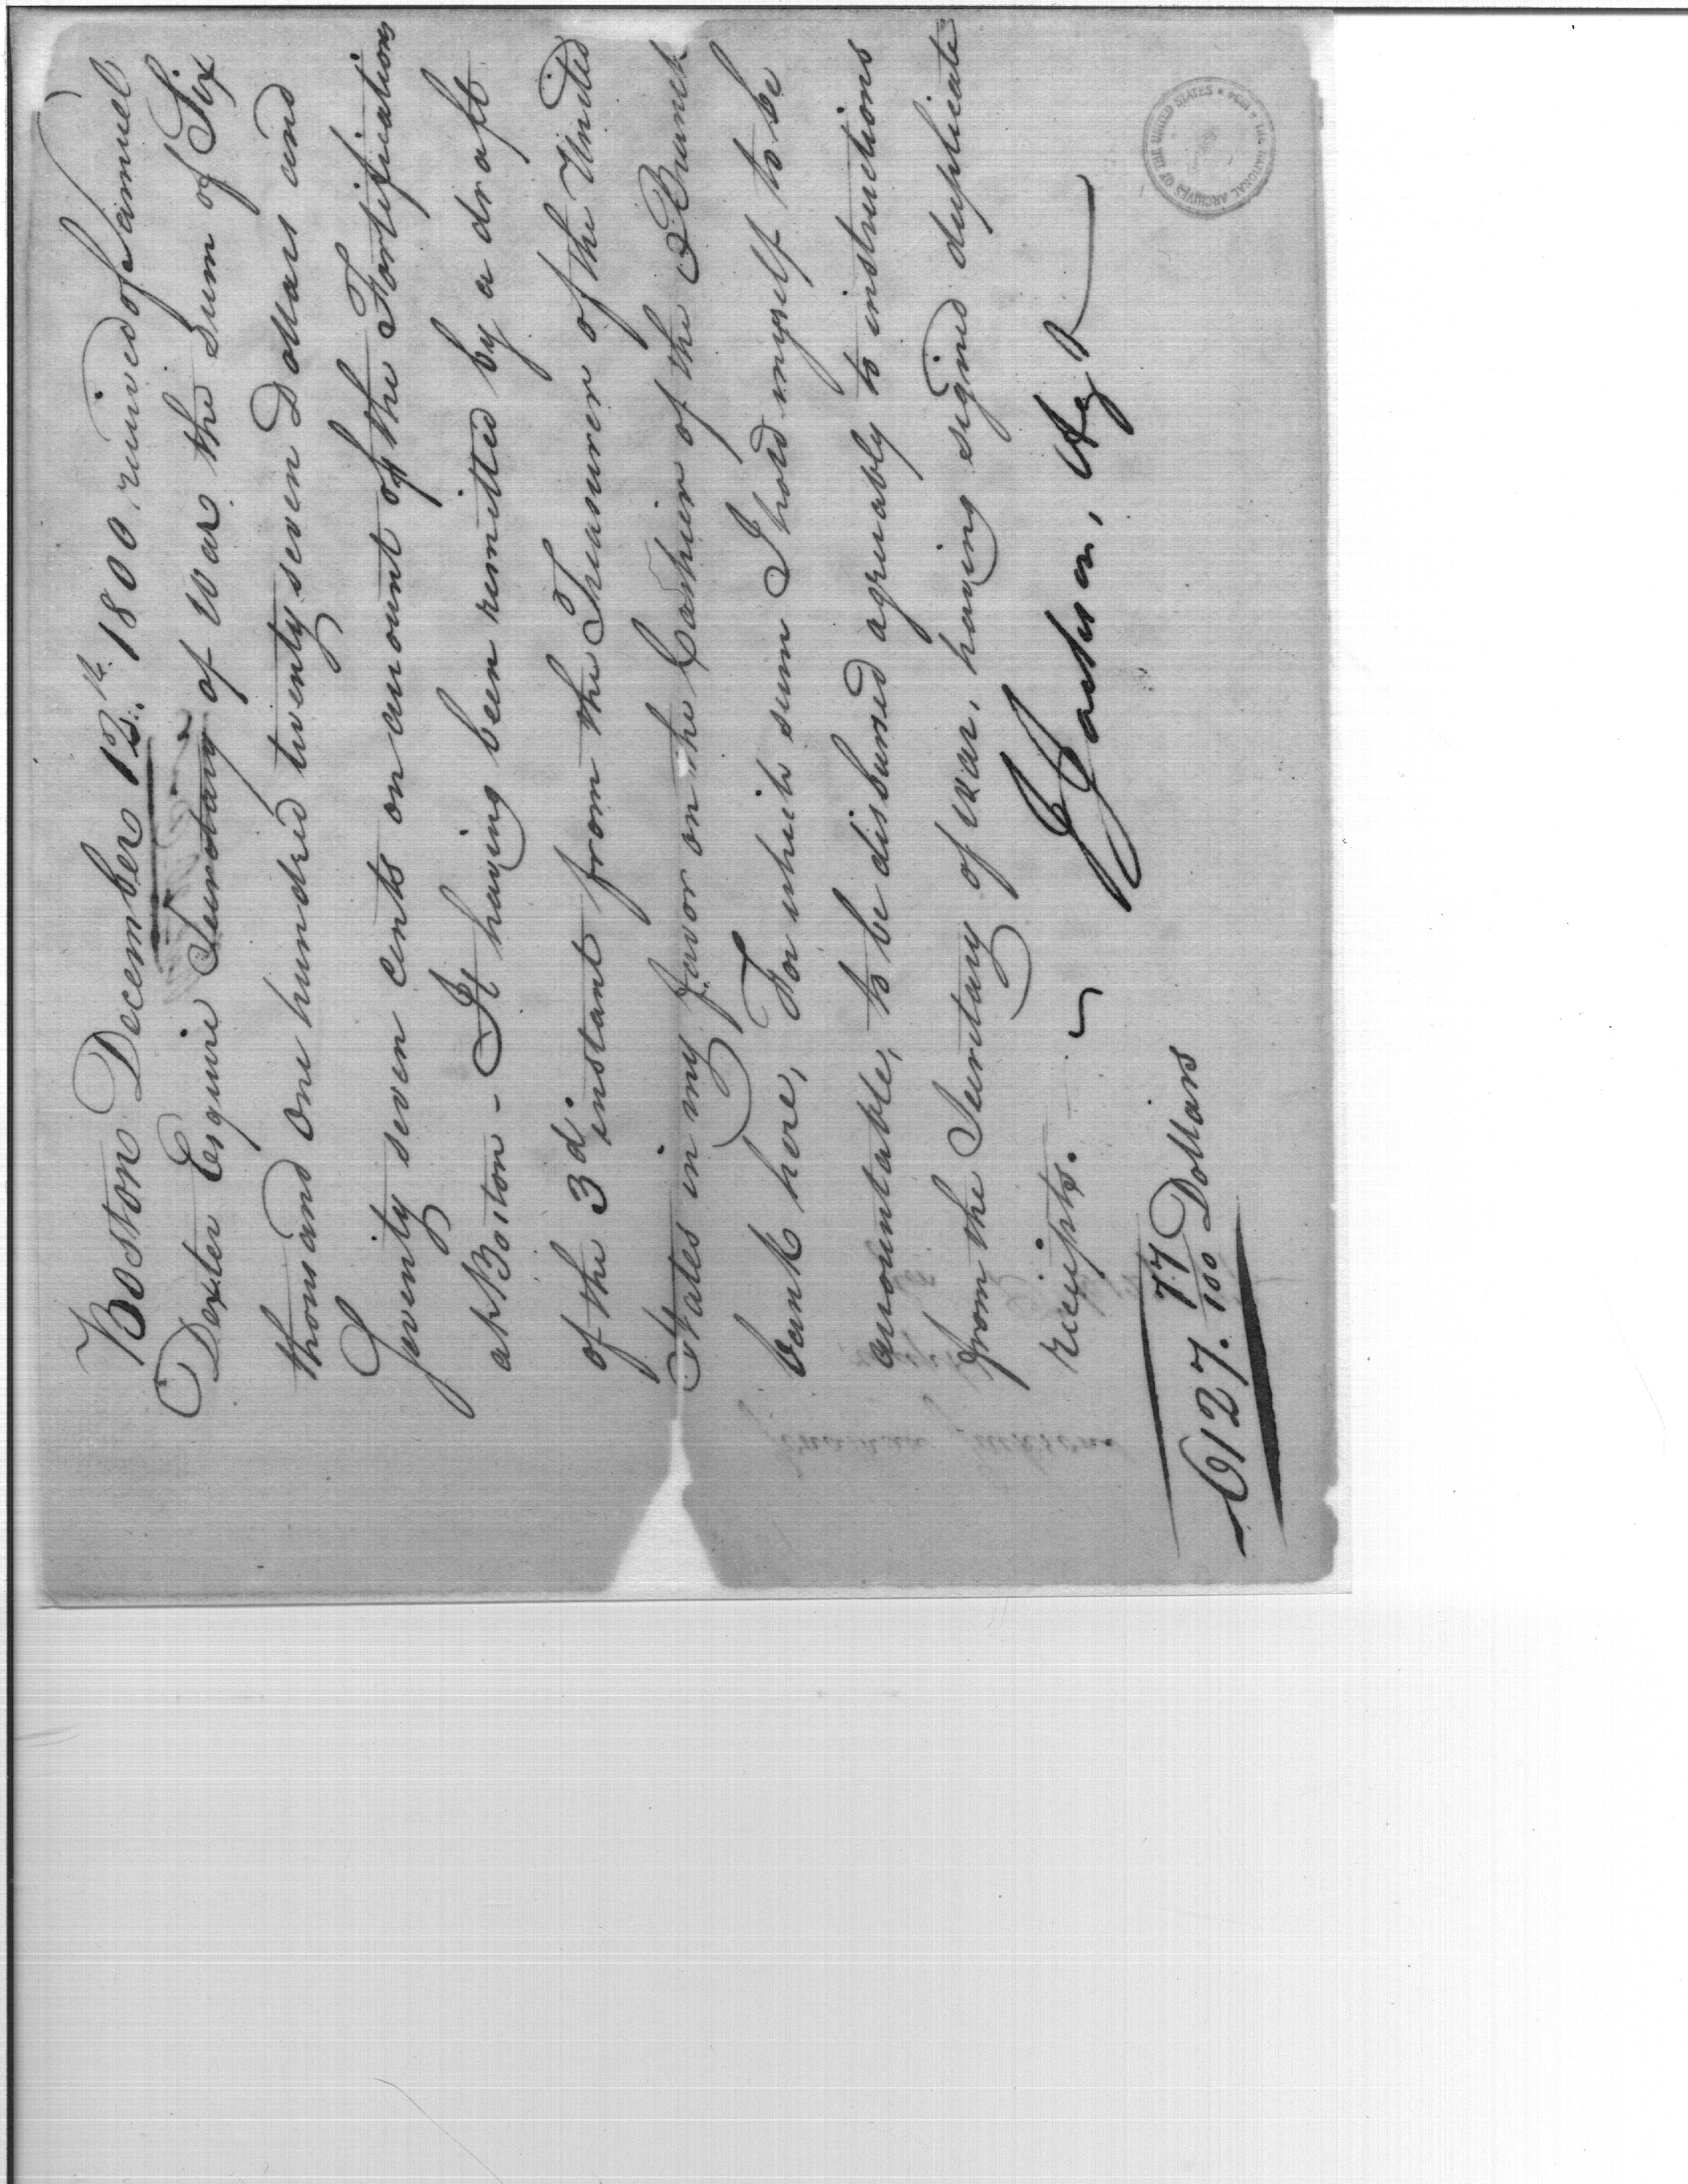 Boston December 13th. 1800, received of Samuel
Dexter Esquire Secretary of War the sum of Six
thousand one hundred twenty seven Dollars and
Seventy seven cents on account of the Fortifications
at Boston - It having been remitted by a draft
of the 3d. instant from the Treasurer of the United
States in my favor on the Cashier of the Branch
bank here, For which sum I hold myself to be
accountable, to be disbursed agreeably to instructions
from the Secretary of war, having signed duplicate
receipts.
J Jackson, Agt
6127. 77/100 Dollars
THE NATIONAL ARCHIVES OF THE UNITED STATES • 1934